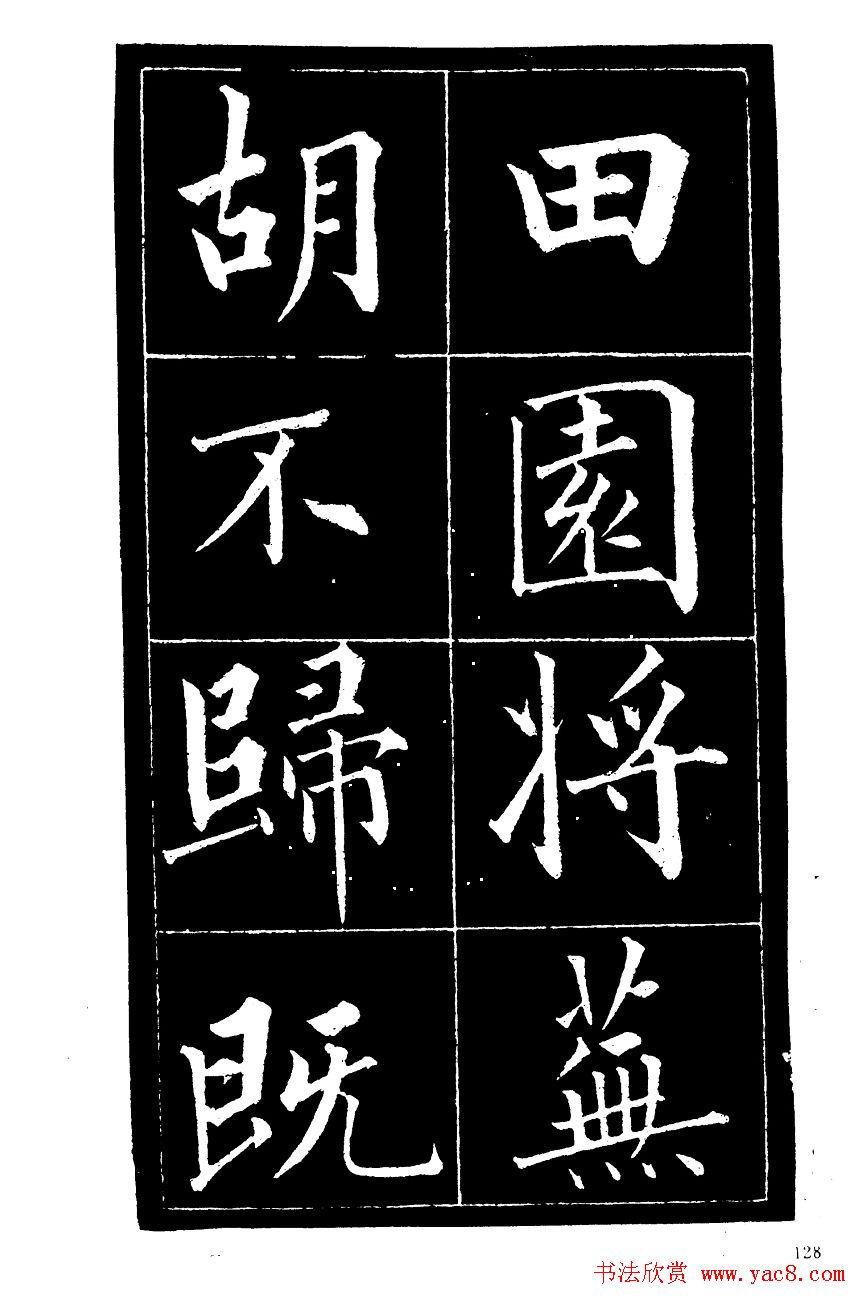 田園将蕪
胡不歸既
128
书法欣赏 www.yac8.com